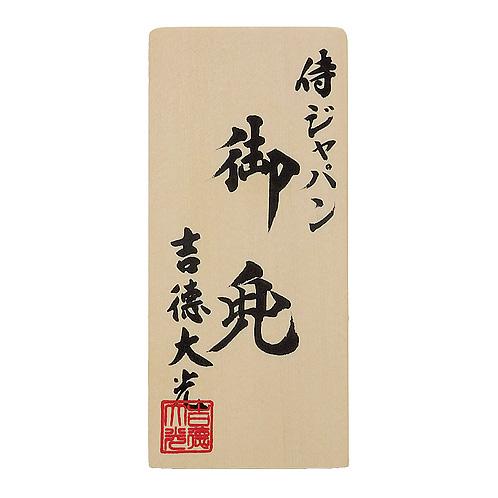 侍ジャパン
御兜
吉德大光
吉德大光